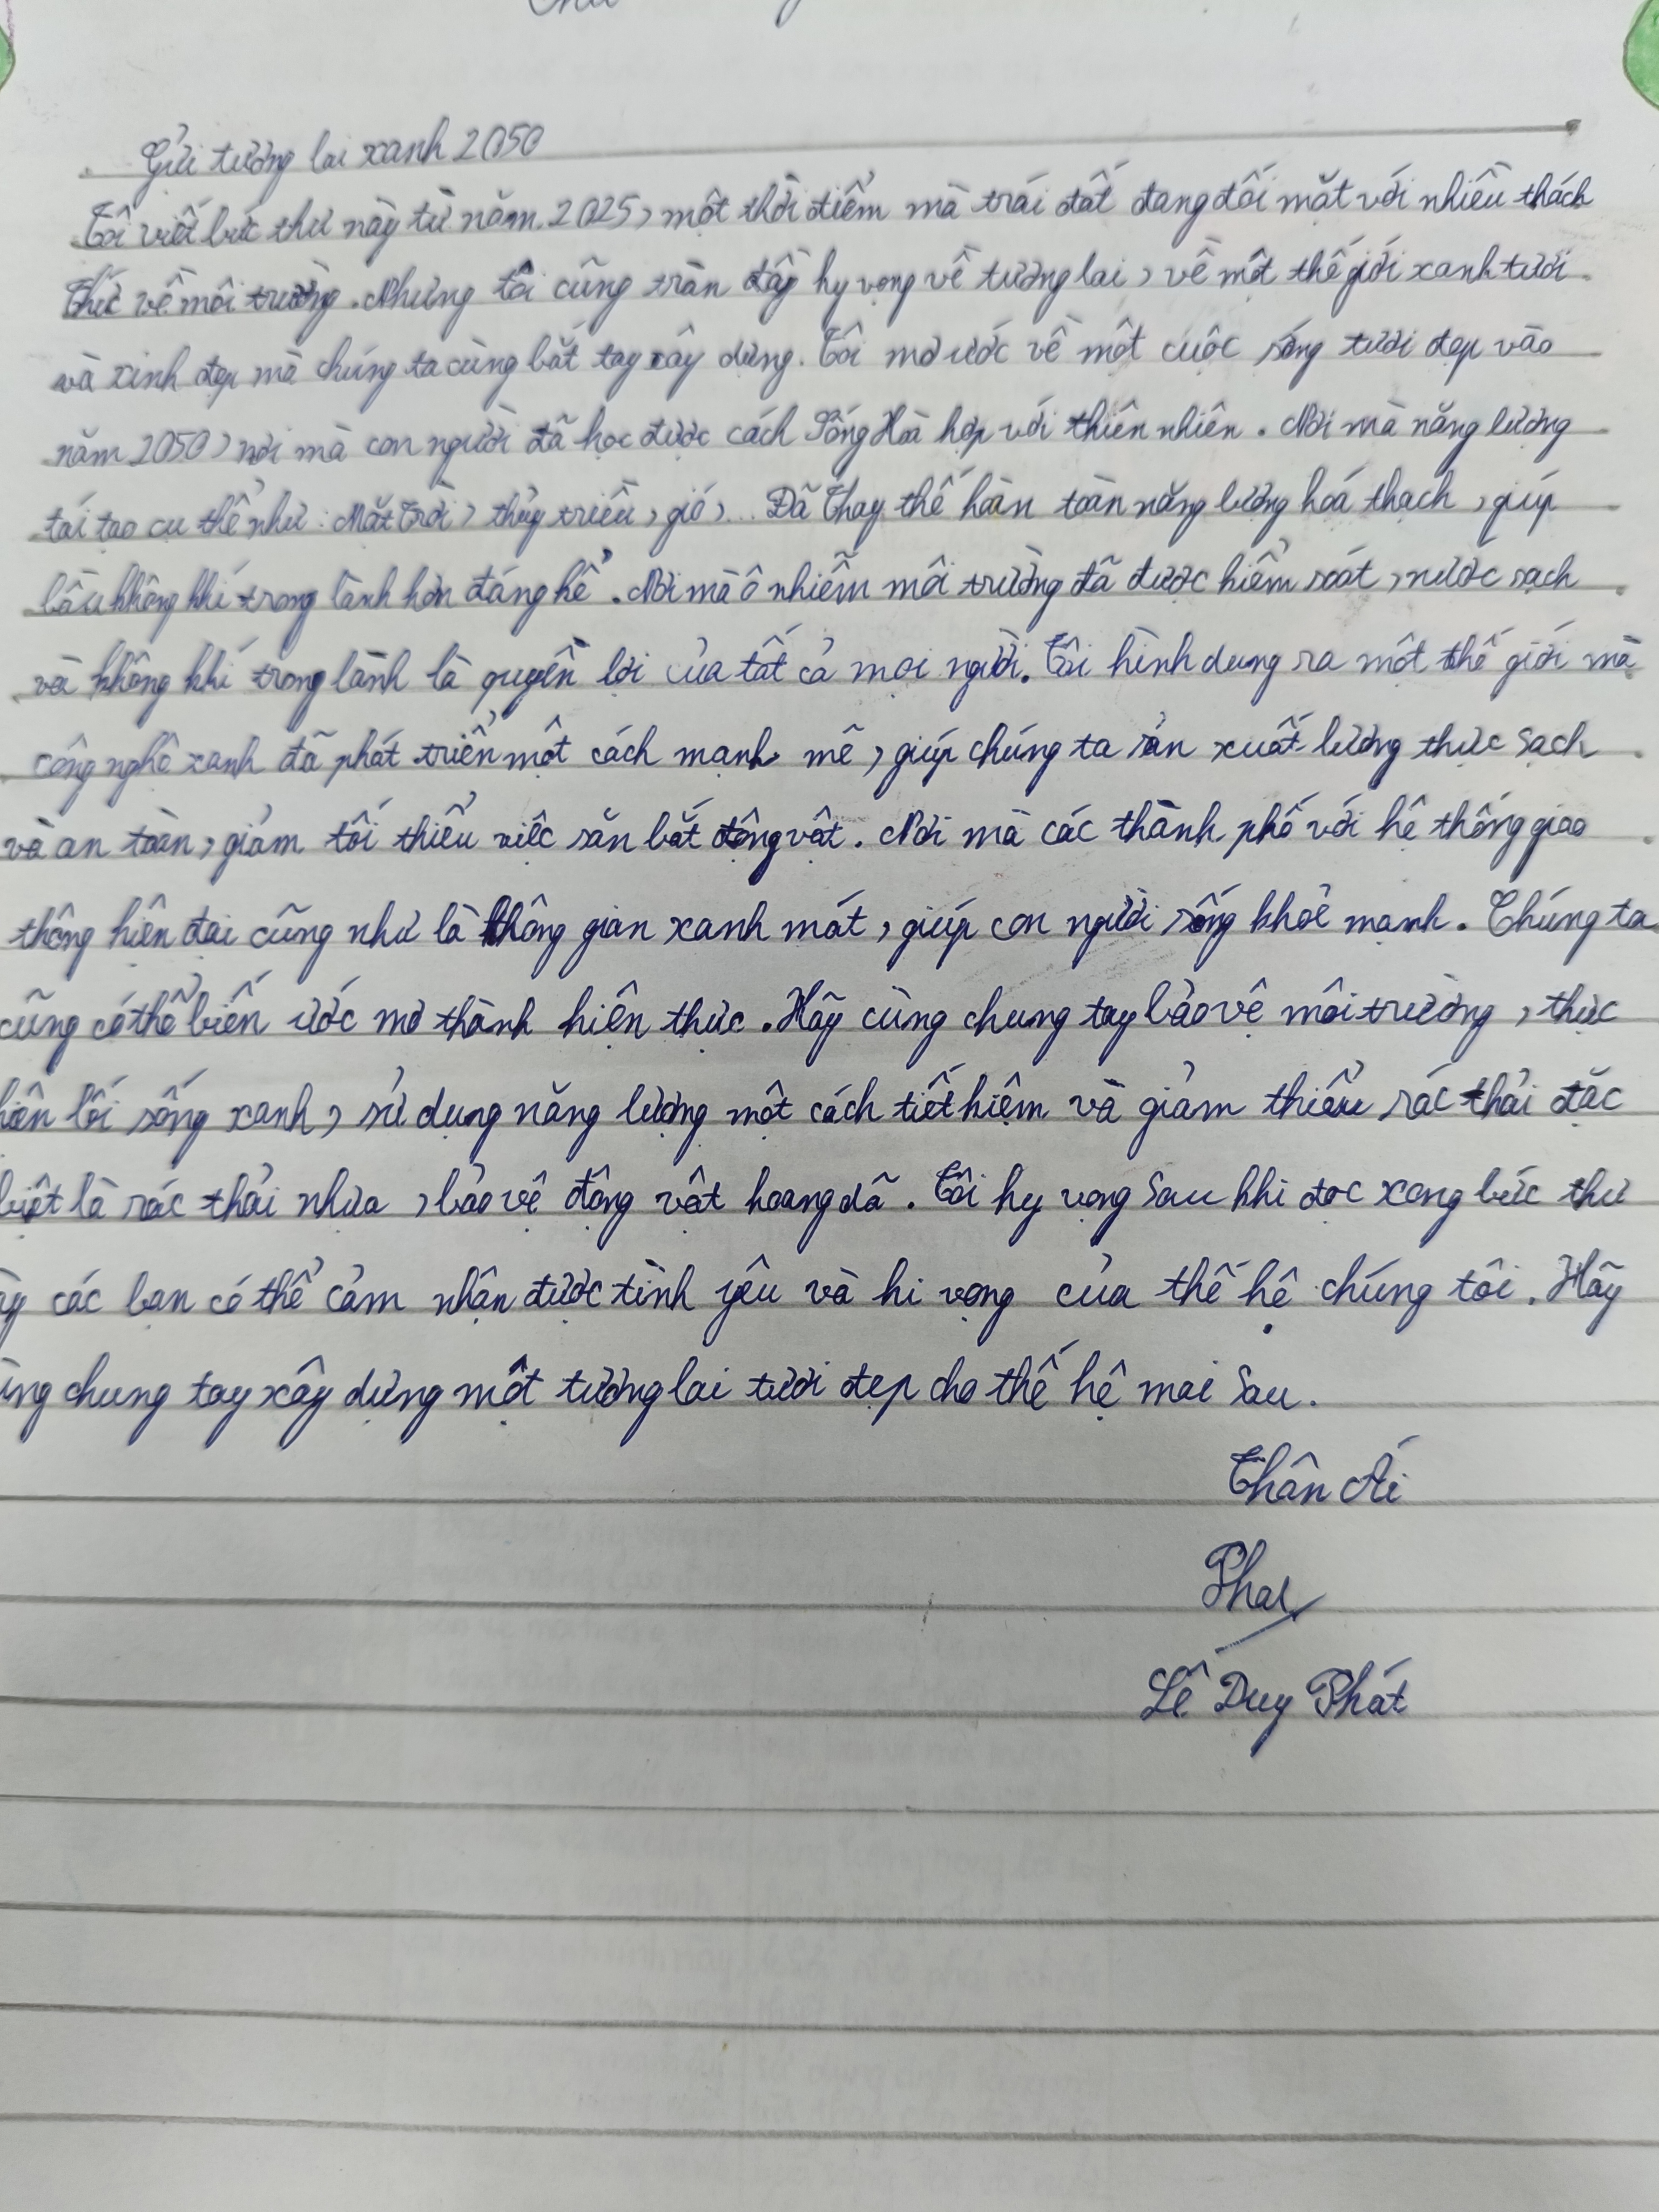 Gửi tương lai xanh 2050
Tôi viết bức thư này từ năm 2025, một thời điểm mà trái đất đang đối mặt với nhiều thách
thức về môi trường. Nhưng tôi cũng tràn đầy hy vọng về tương lai, về một thế giới xanh tươi
và xinh đẹp mà chúng ta cùng bắt tay xây dựng. Tôi mơ ước về một cuộc sống tươi đẹp vào
năm 2050, nơi mà con người đã học được cách Sống Hoà hợp với thiên nhiên. Nơi mà năng lượng
tái tạo cụ thể như: Mặt Trời, thủy triều, gió,... Đã Thay thế hoàn toàn năng lượng hoá thạch, giúp
bầu không khí trong lành hơn đáng kể. Nơi mà ô nhiễm môi trường đã được kiểm soát, nước sạch
và không khí trong lành là quyền lợi của tất cả mọi người. Tôi hình dung ra một thế giới mà
công nghệ xanh đã phát triển một cách mạnh mẽ, giúp chúng ta sản xuất lương thực sạch
và an toàn, giảm tối thiểu việc săn bắt động vật. Nơi mà các thành phố với hệ thống giao
thông hiện đại cũng như là không gian xanh mát, giúp con người sống khoẻ mạnh. Chúng ta
cũng có thể biến ước mơ thành hiện thực. Hãy cùng chung tay bảo vệ môi trường, thực
hiện lối sống xanh, sử dụng năng lượng một cách tiết kiệm và giảm thiểu rác thải đặc
biệt là rác thải nhựa, bảo vệ động vật hoang dã. Tôi hy vọng sau khi đọc xong bức thư
các bạn có thể cảm nhận được tình yêu và hi vọng của thế hệ chúng tôi. Hãy
chung tay xây dựng một tương lai tươi đẹp cho thế hệ mai sau.
Thân Ái
Phat
Lê Duy Phát